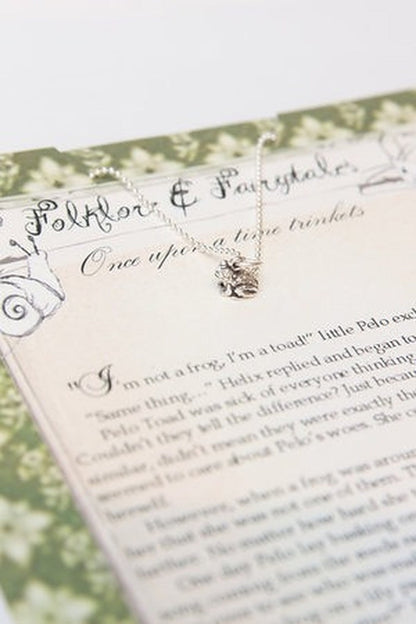 Folklore & Fairytales
Once upon a time trinkets
"I'm not a frog, I'm a toad!" little Pelo excl
"Same thing..." Helix replied and began to
Pelo Toad was sick of everyone thinking
Couldn't they tell the difference? Just becaus
similar, didn't mean they were exactly the
seemed to care about Pelo's woes. She
herself.
However, when a frog was aroun
her that she was not one of them.
further. No matter how hard she
One day Pelo lay basking
song coming from the reeds
to see who was
frog on a lily